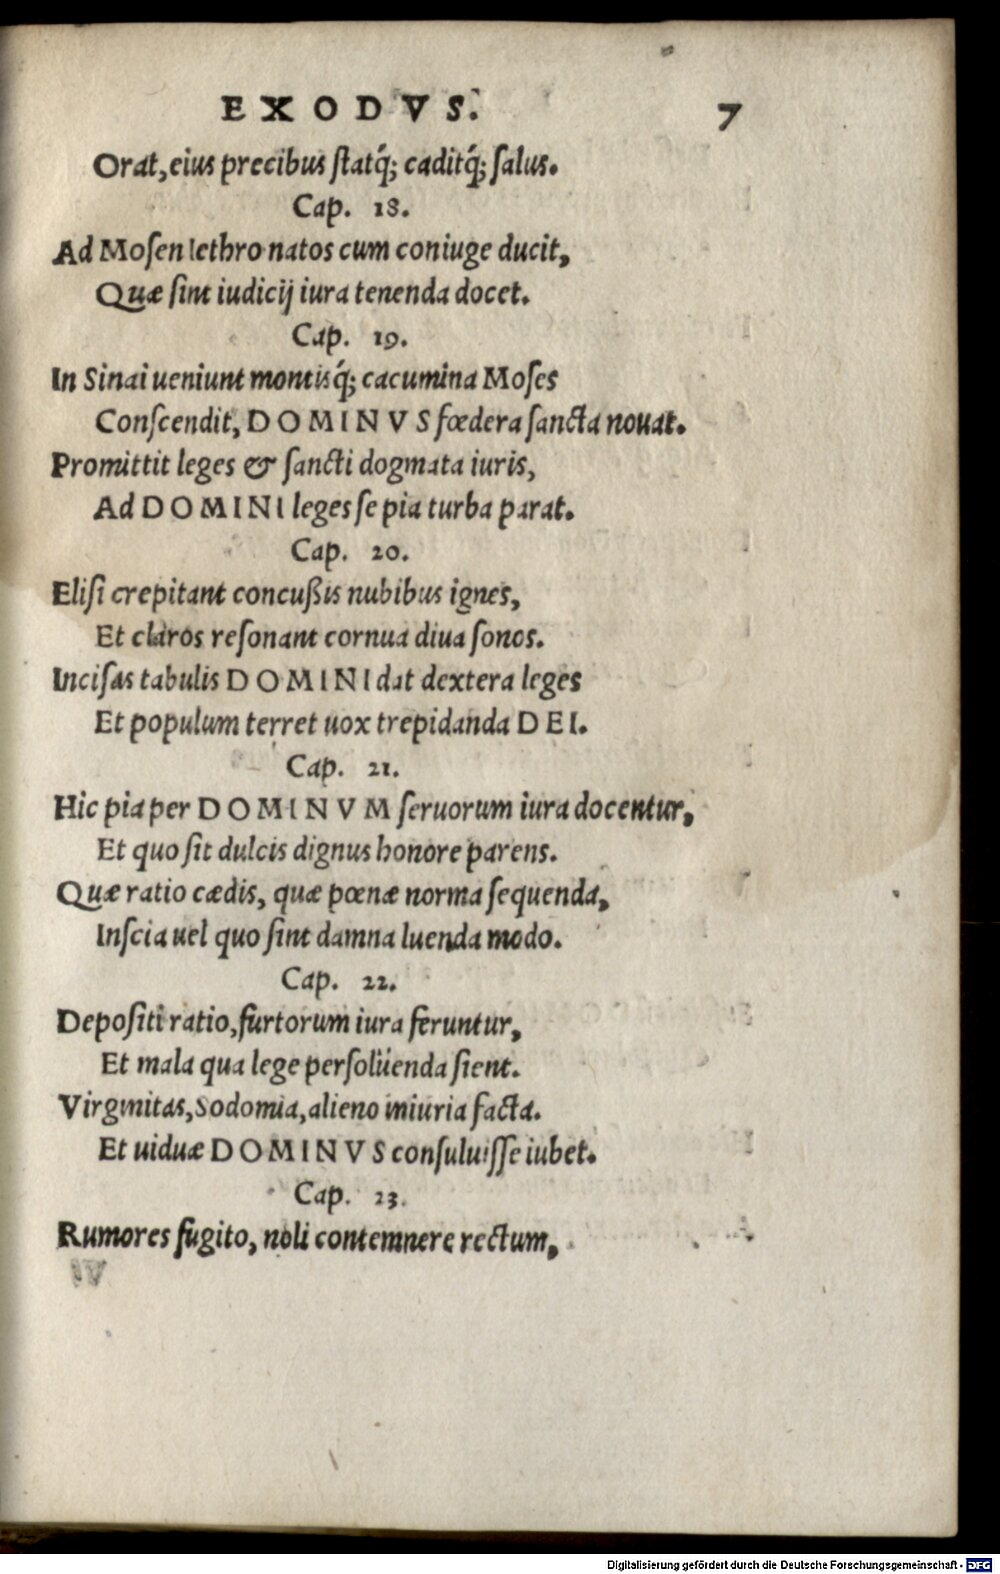 EXODVS. 7
Orat, eius precibus ſtatq́; caditq́; ſalus.
Cap. 18.
Ad Moſen Iethro natos cum coniuge ducit,
Quæ ſint iudicij iura tenenda docet.
Cap. 19.
In Sinai ueniunt montisq́; cacumina Moſes
Conſcendit, DOMINVS fœdera ſancta nouat.
Promittit leges & ſancti dogmata iuris,
Ad DOMINI leges ſe pia turba parat.
Cap. 20.
Eliſi crepitant concußis nubibus ignes,
Et claros reſonant cornua diua ſonos.
Inciſas tabulis DOMINI dat dextera leges
Et populum terret uox trepidanda DEI.
Cap. 21.
Hic pia per DOMINVM ſeruorum iura docentur,
Et quo ſit dulcis dignus honore parens.
Quæ ratio cædis, quæ pœnæ norma ſequenda,
Inſcia uel quo ſint damna luenda modo.
Cap. 22.
Depoſiti ratio, furtorum iura feruntur,
Et mala qua lege perſoluenda ſient.
Virginitas, Sodomia, alieno iniuria facta.
Et uiduæ DOMINVS conſuluiſſe iubet.
Cap. 23.
Rumores fugito, noli contemnere rectum,
Digitalisierung gefördert durch die Deutsche Forschungsgemeinschaft - DFG